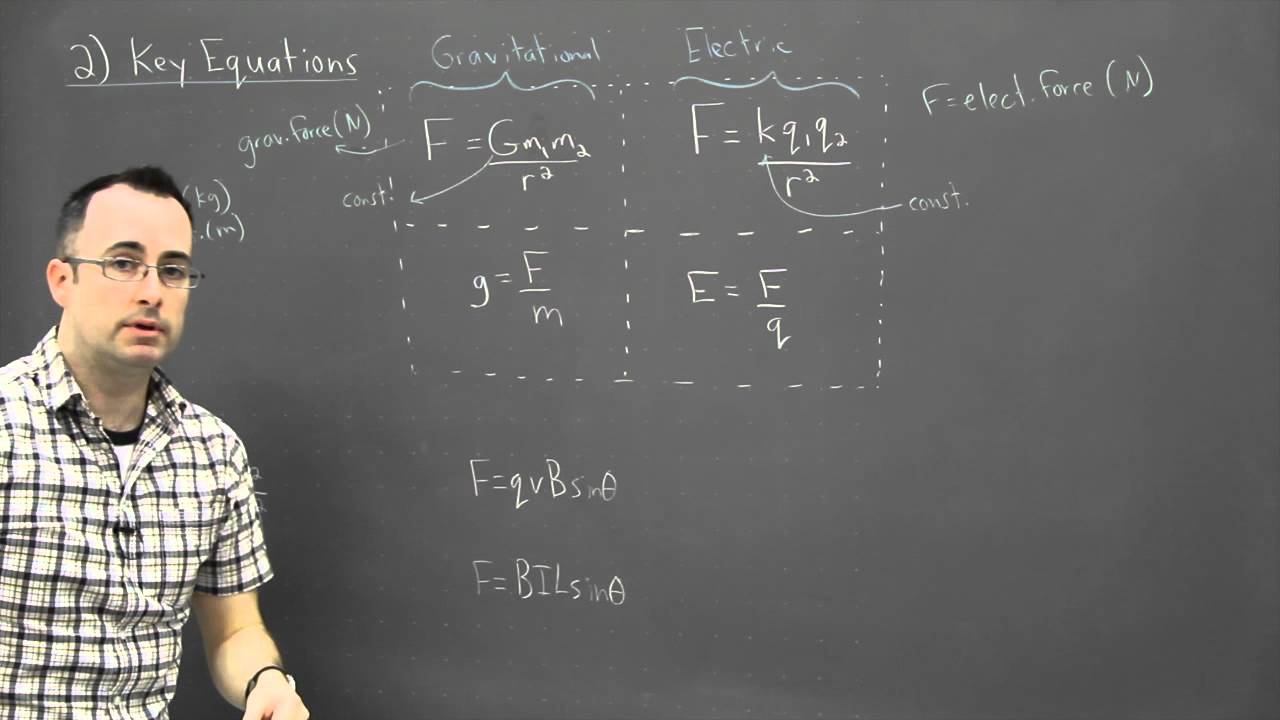 2) Key Equations
Gravitational
Electric
F = elect. force (N)
grav. force (N)
F = Gm₁m₂
r²
F = kq₁q₂
r²
(kg)
const!
const.
(m)
g = F
m
E = F
q
F = qvBsinθ
2
F = BILsinθ